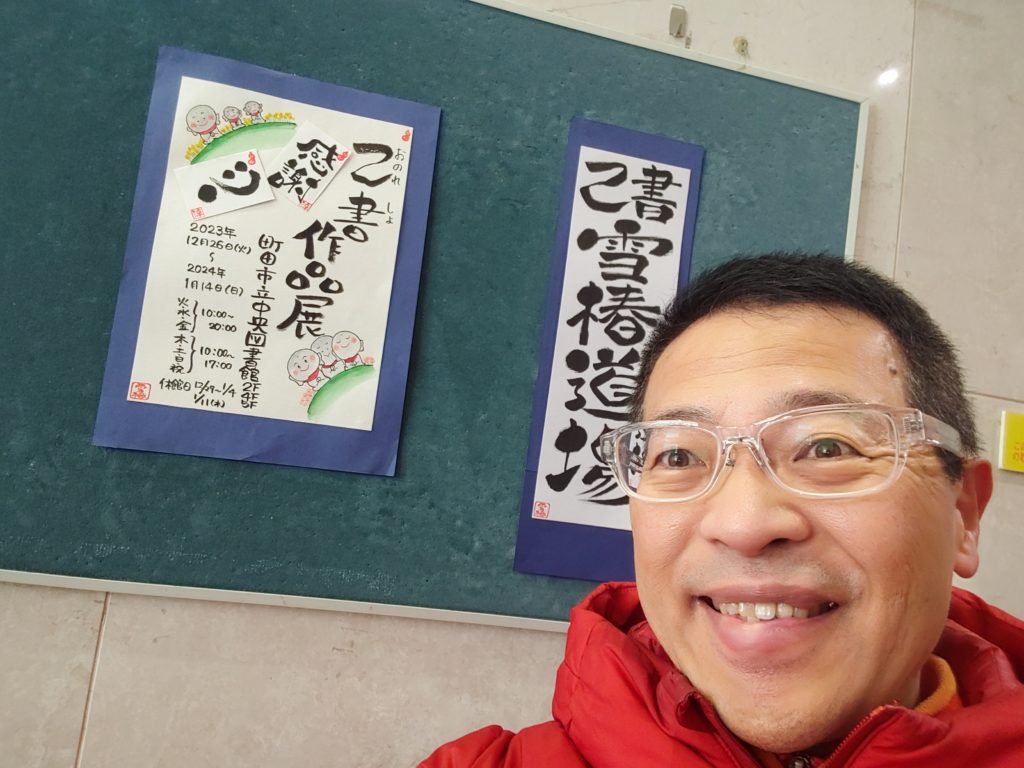 己書作品展
おのれしょ
感謝
心
町田市立中央図書館2F4F5F
2023年
12月26日(火)
〜
2024年
1月14日(日)
火・水・金 10:00〜20:00
木・土・日・祝 10:00〜17:00
休館日 12/29〜1/4
1/11(木)
己書
雪椿道場